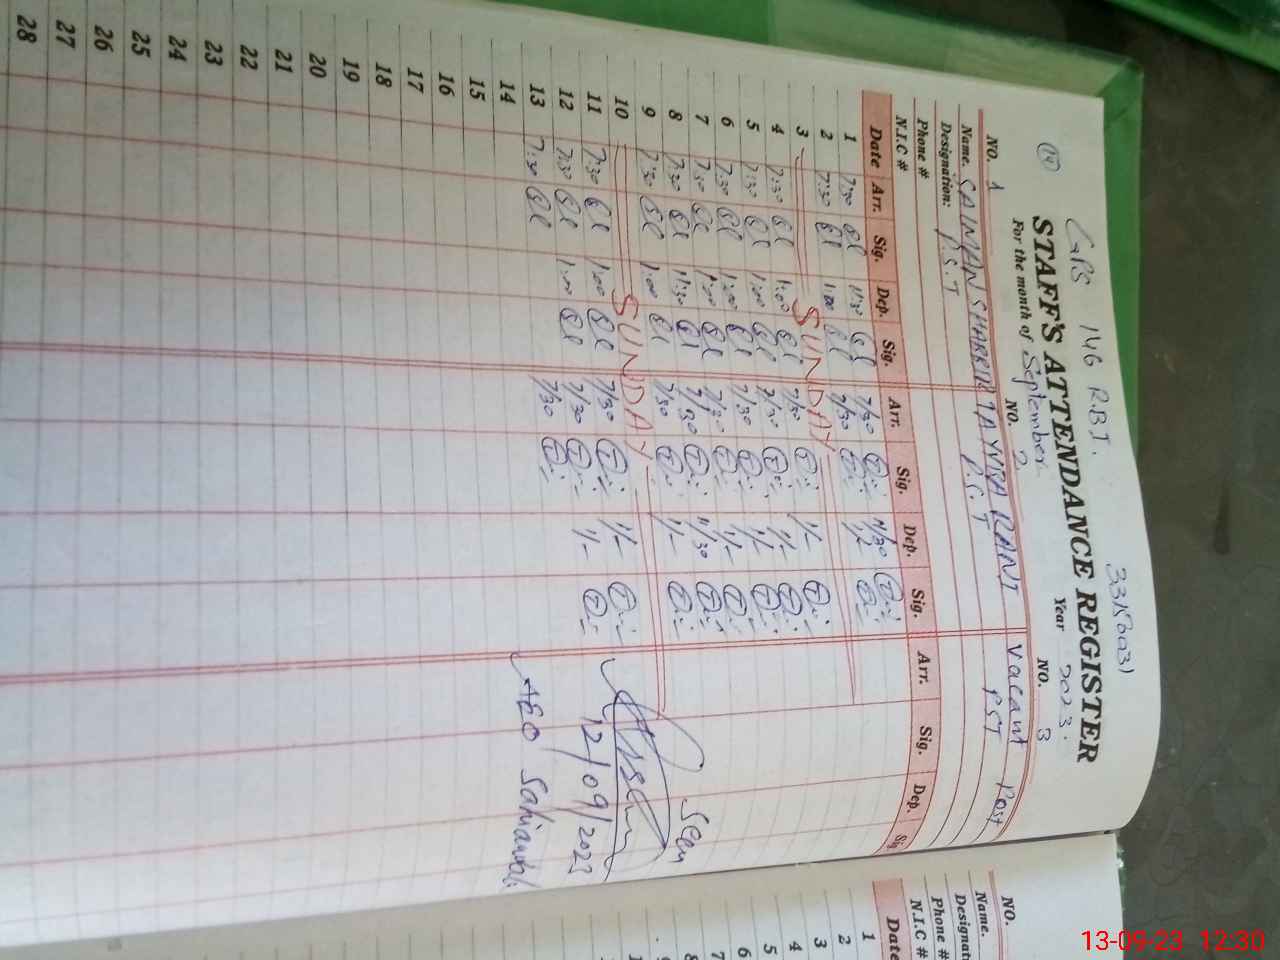 (14)
GPS 146 R.B I. 33150031
STAFF'S ATTENDANCE REGISTER
For the month of September Year 2023.
NO. 1 NO. 2 NO. 3
Name. SAIMAN SHARRIF TAYYBA RANI Vacant Post
Designation: P.S.T P.S.T PST
Phone #
N.I.C #
Date Arr. Sig. Dep. Sig. Arr. Sig. Dep. Sig. Arr. Sig. Dep. Sig.
1 7:30 11:30 7/30 11/30
2 7:30 1:00 7/30 1/-
3 SUNDAY
4 7:30 1:00 7/30 1/-
5 7:30 1:00 7/30 1/-
6 7:30 1:00 7/30 1/-
7 7:30 1:00 7/30 1/-
8 7:30 11:30 7/30 11/30
9 7:30 1:00 7/30 1/-
10 SUNDAY
11 7:30 1:00 7/30 1/-
12 7:30 1:00 7/30 1/-
13 7:30 7/30
14
15
16
17
18
19
20
21
22
23
24
25
26
27
28
Seen
12/09/2023
AEO
NO.
Name.
Designat
Phone #
N.I.C #
Date
1
2
3
4
5
6
7
8
13-09-23 12:30